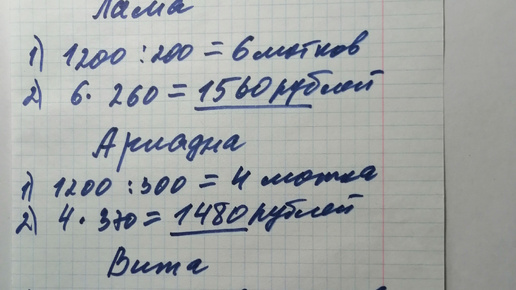 Лама
1) 1200 : 200 = 6 мотков
2) 6 · 260 = 1560 рублей
Ариадна
1) 1200 : 300 = 4 мотка
2) 4 · 370 = 1480 рублей
Вита